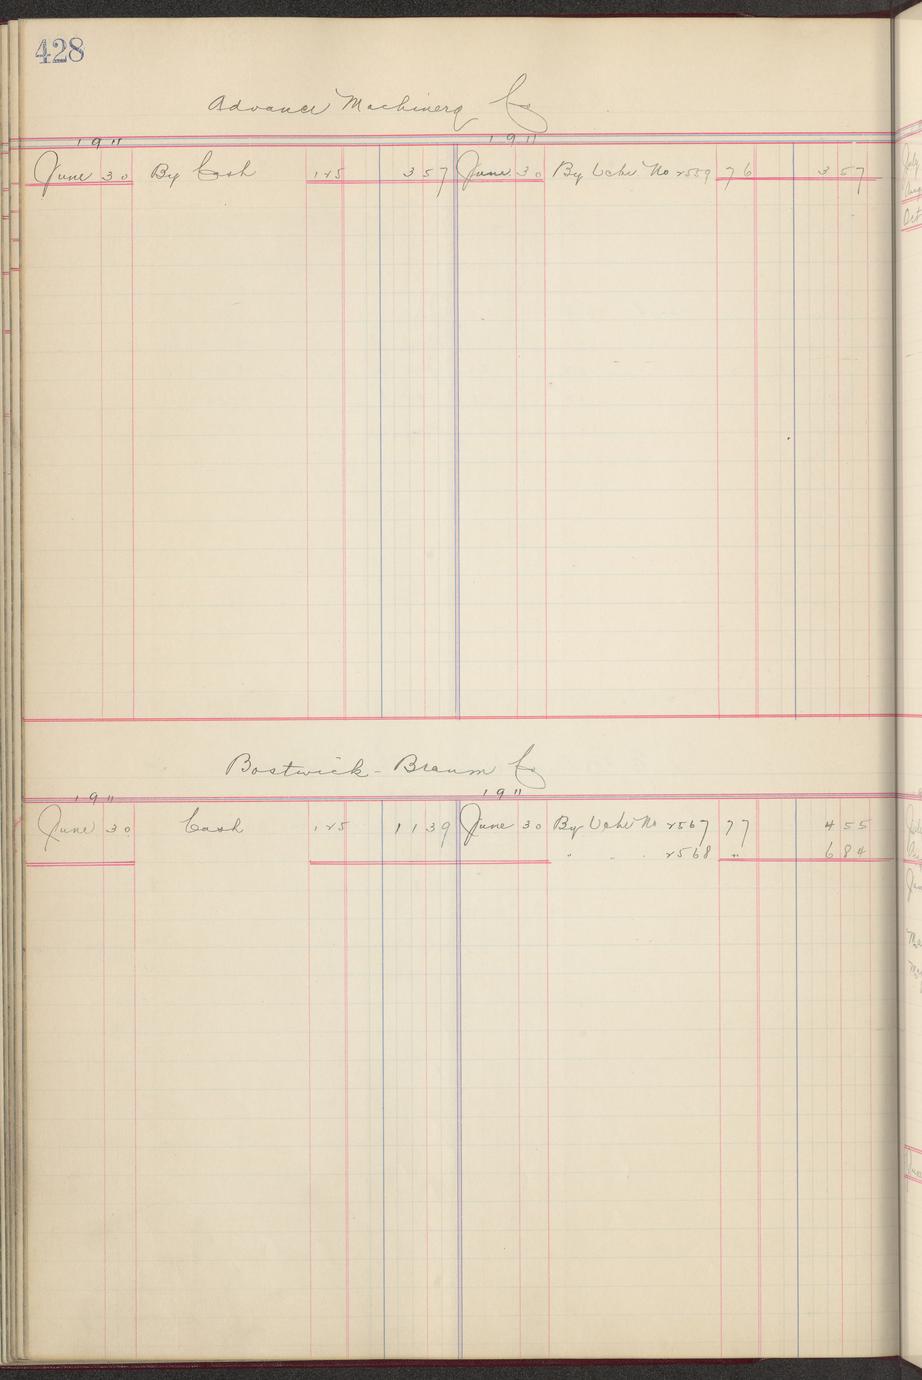 428
Advance Machinery Co
1911 1911
June 30 By Cash 125 3 57 June 30 By Vchr No 2559 76 3 57
Bostwick-Braun Co
1911 1911
June 30 Cash 125 11 39 June 30 By Vchr No 2567 77 4 55
" " " 2568 " 6 84